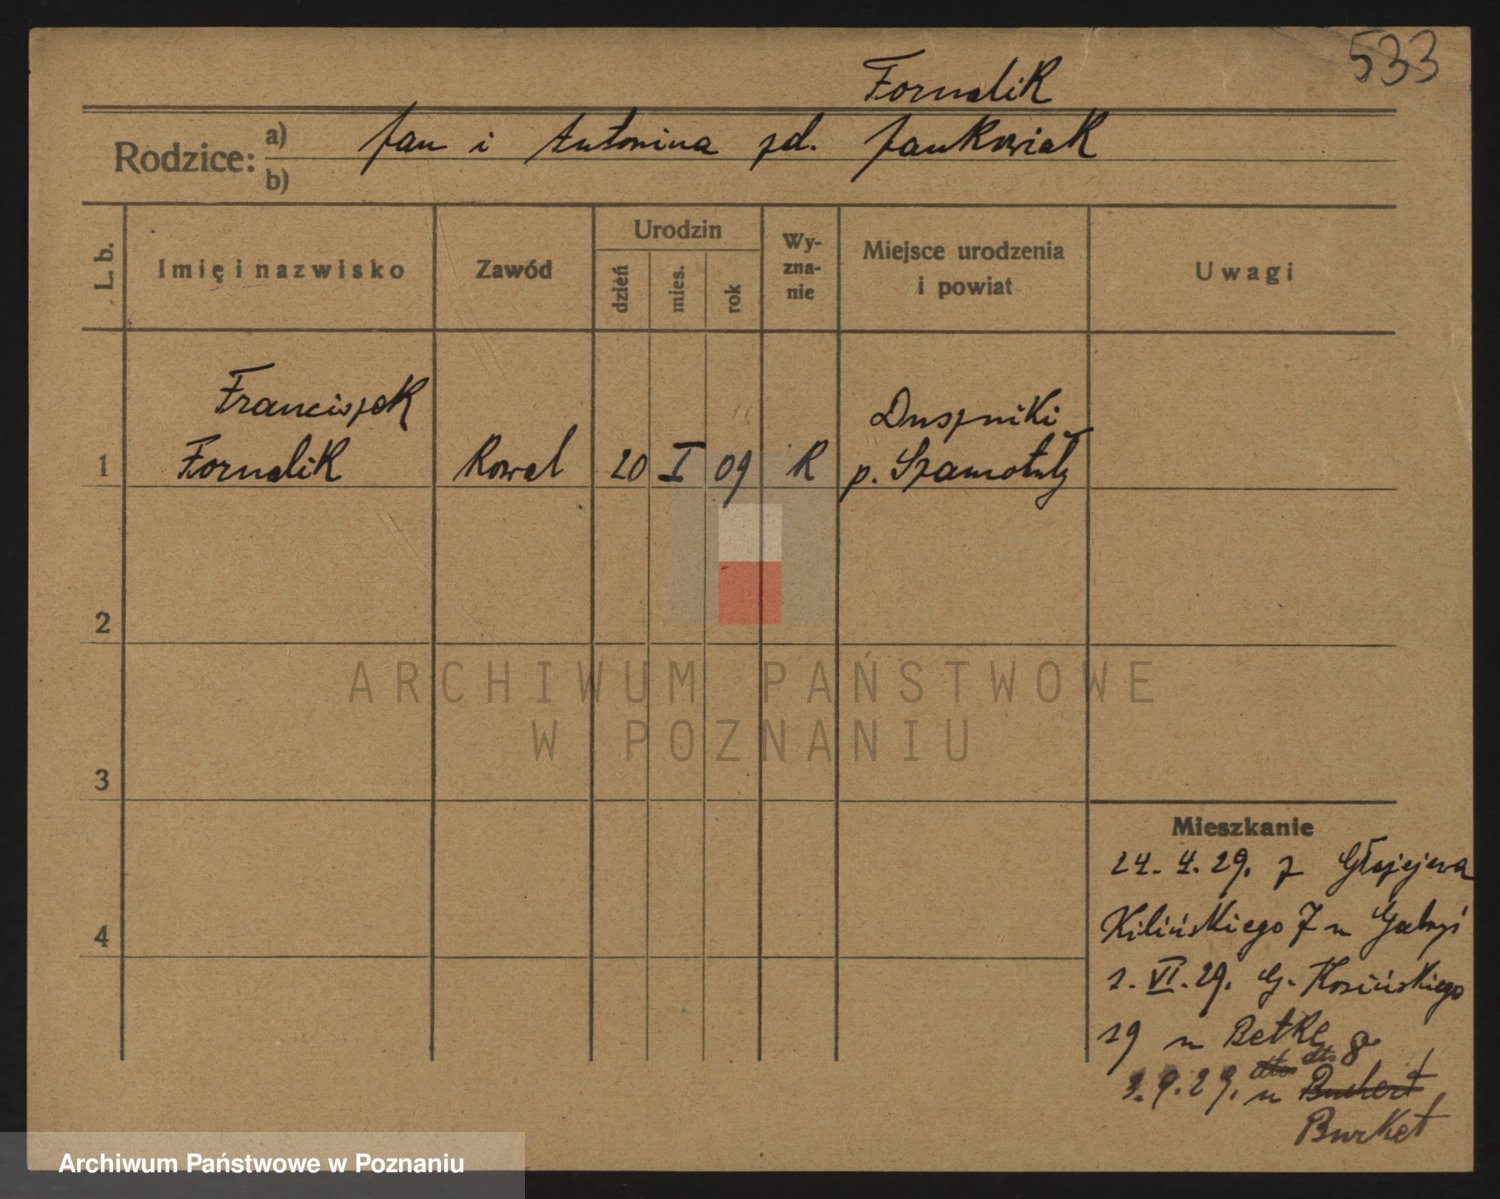 533
Fornalik
Rodzice: a) Jan i Antonina zd. Jankowiak
b)
L. b.
Imię i nazwisko
Zawód
Urodzin
dzień
mies.
rok
Wy-
zna-
nie
Miejsce urodzenia
i powiat
Uwagi
Franciszek
Duszniki
1 Fornalik Kowal 20 I 09 R p. Szamotuły
2
3
4
ARCHIWUM PAŃSTWOWE
W POZNANIU
Mieszkanie
24. 4. 29. z
Kilińskiego 7 u
1. VI. 29. G. Kosińskiego
19 u Betke
dto dto 8
3. 9. 29. u Buchert
Burket
Archiwum Państwowe w Poznaniu